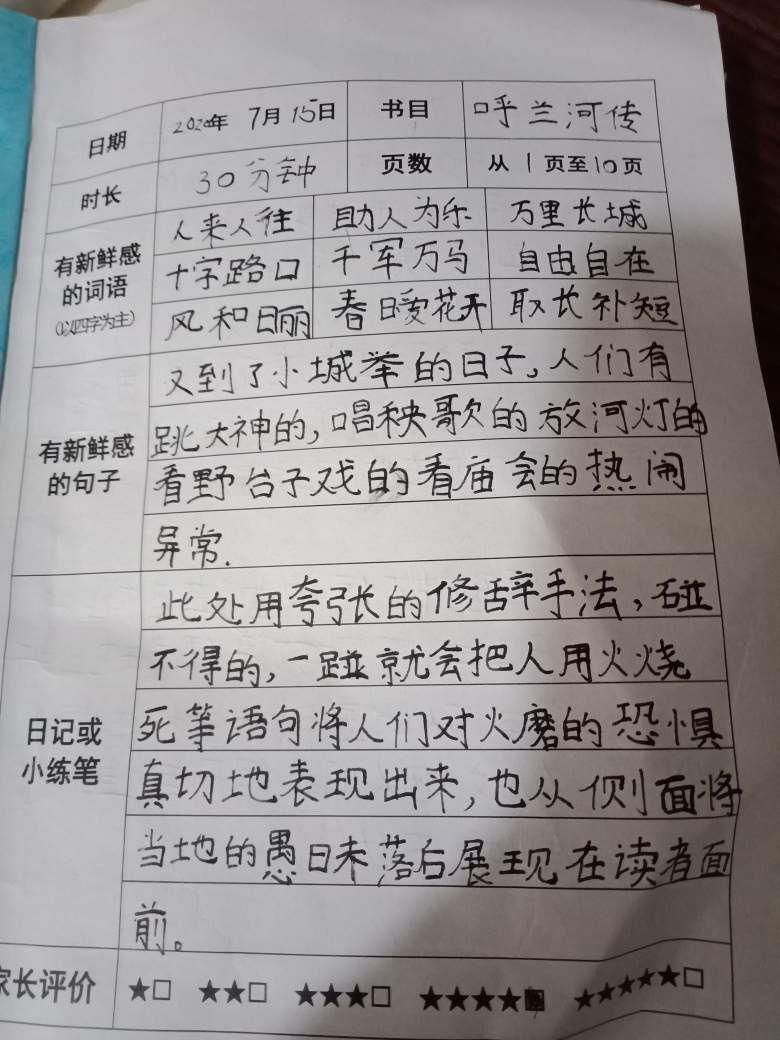 日期 2020年 7月15日 书目 呼兰河传
时长 30分钟 页数 从 1 页至10页
有新鲜感的词语(以四字为主)
人来人往 助人为乐 万里长城
十字路口 千军万马 自由自在
风和日丽 春日暖花开 取长补短
有新鲜感的句子
又到了小城举的日子,人们有
跳大神的,唱秧歌的放河灯的
看野台子戏的看庙会的热闹
异常.
日记或小练笔
此处用夸张的修辞手法,碰
不得的,一踫就会把人用火烧
死等语句将人们对火磨的恐惧
真切地表现出来,也从侧面将
当地的愚日未落后展现在读者面
前。
家长评价 ★□ ★★□ ★★★□ ★★★★■ ★★★★★□